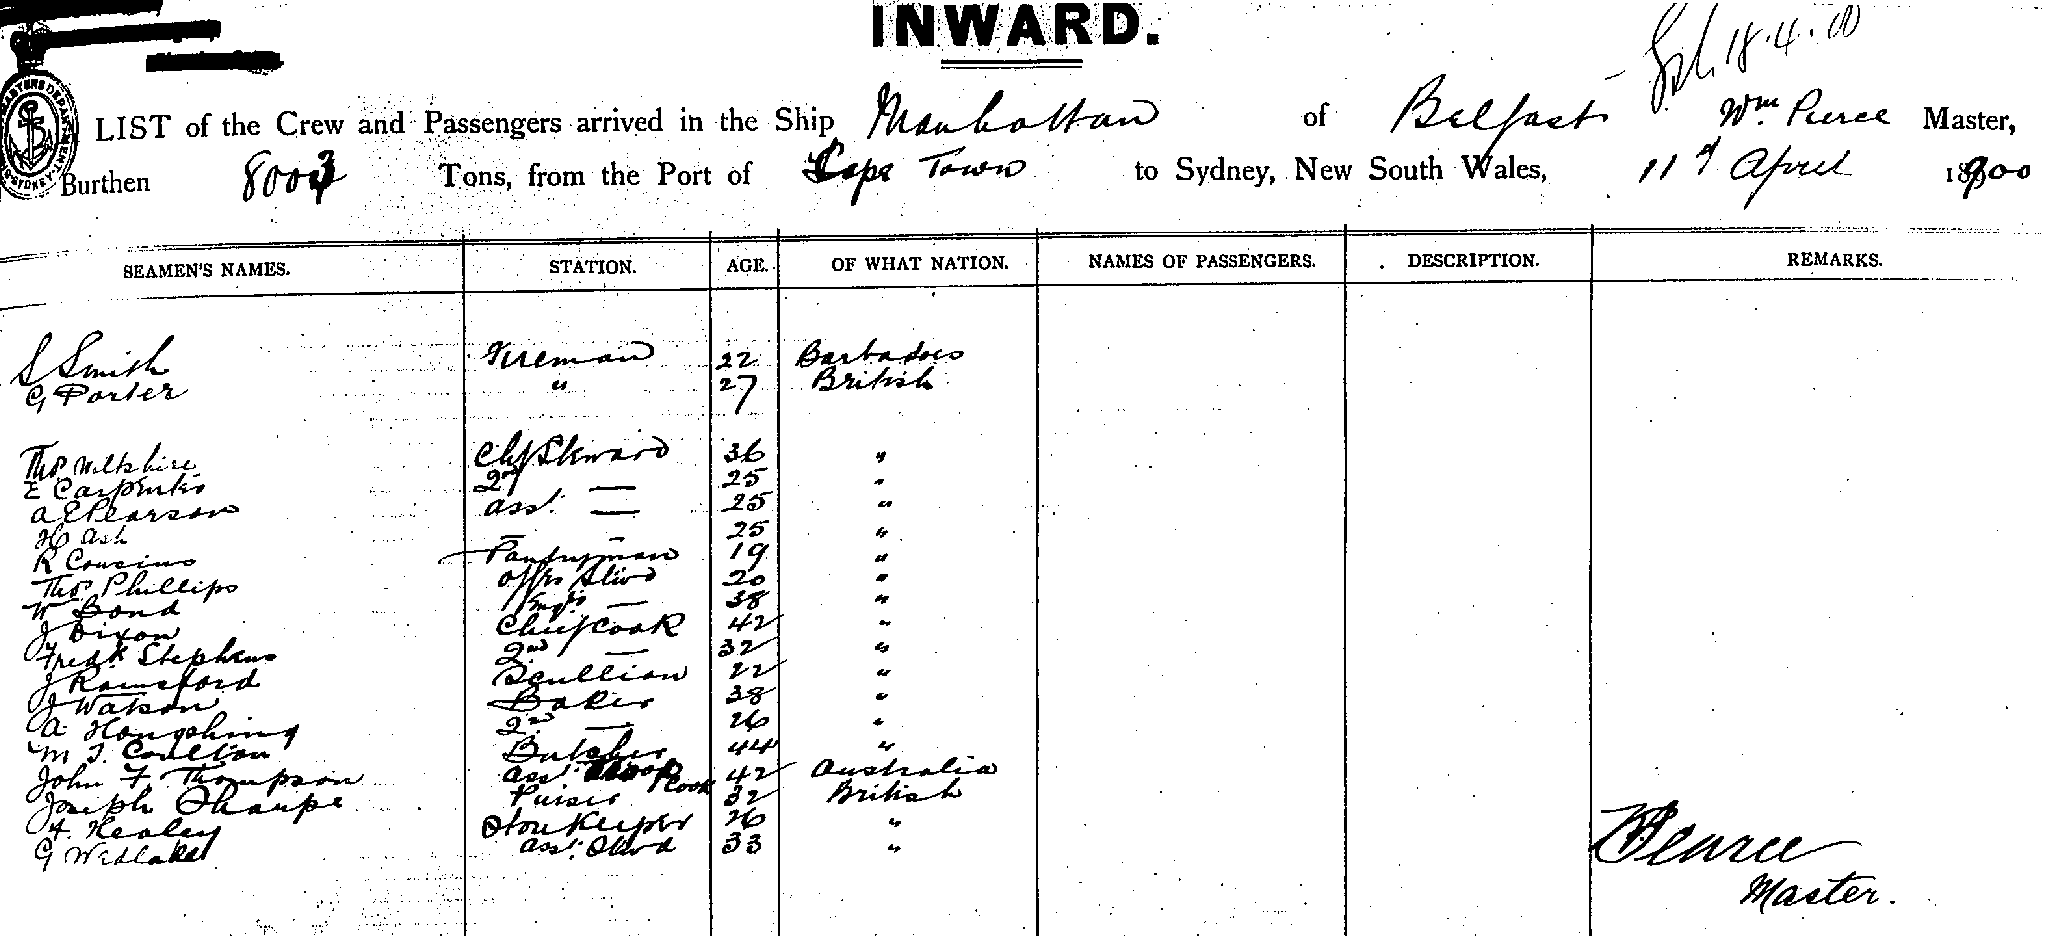 INWARD.
18.4.00
LIST of the Crew and Passengers arrived in the Ship Manhattan of Belfast Wm Pierce Master,
Burthen 8003 Tons, from the Port of Cape Town to Sydney, New South Wales, 11th April 1900
SEAMEN'S NAMES. STATION. AGE. OF WHAT NATION. NAMES OF PASSENGERS. DESCRIPTION. REMARKS.
S Smith Fireman 22 Barbadoes
G Porter " 27 British
Thos Wiltshire Chf Steward 36 "
E Carpenter 2nd — 25 "
A E Pearson asst. — 25 "
H Ash — - 25 "
R Cousins Pantryman 19 "
Thos Phillips offrs Stwd 20 "
W Bond Engrs — 38 "
J Dixon Chief Cook 42 "
Fredk Stephens 2nd — 32 "
J Rainsford Scullion 22 "
J Watson Baker 38 "
A 2nd — 26 "
M J. Coulton Butcher 44 "
John F. Thompson asst. Cook 42 Australia
Joseph Sharpe Purser 32 British
F. Healey Storekeeper 26 "
G Wedlake asst. Stwd 33 "
W Pearce
Master.